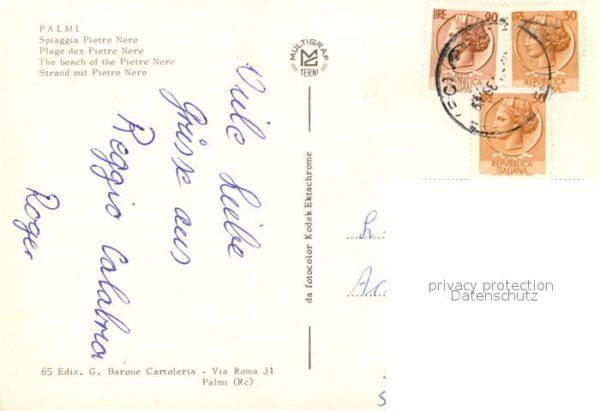 PALMI
Spiaggia Pietre Nere
Plage des Pietre Nere
The beach of the Pietre Nere
Strand mit Pietre Nere
MULTIGRAF
TERNI
LIRE 90
LIRE 30
REPUBBLICA
ITALIANA
Viele Liebe
Grüsse aus
Reggio Calabria
Roger
da fotocolor Kodak Ektachrome
privacy protection
Datenschutz
65 Ediz. G. Barone Cartoleria - Via Roma 31
Palmi (Rc)